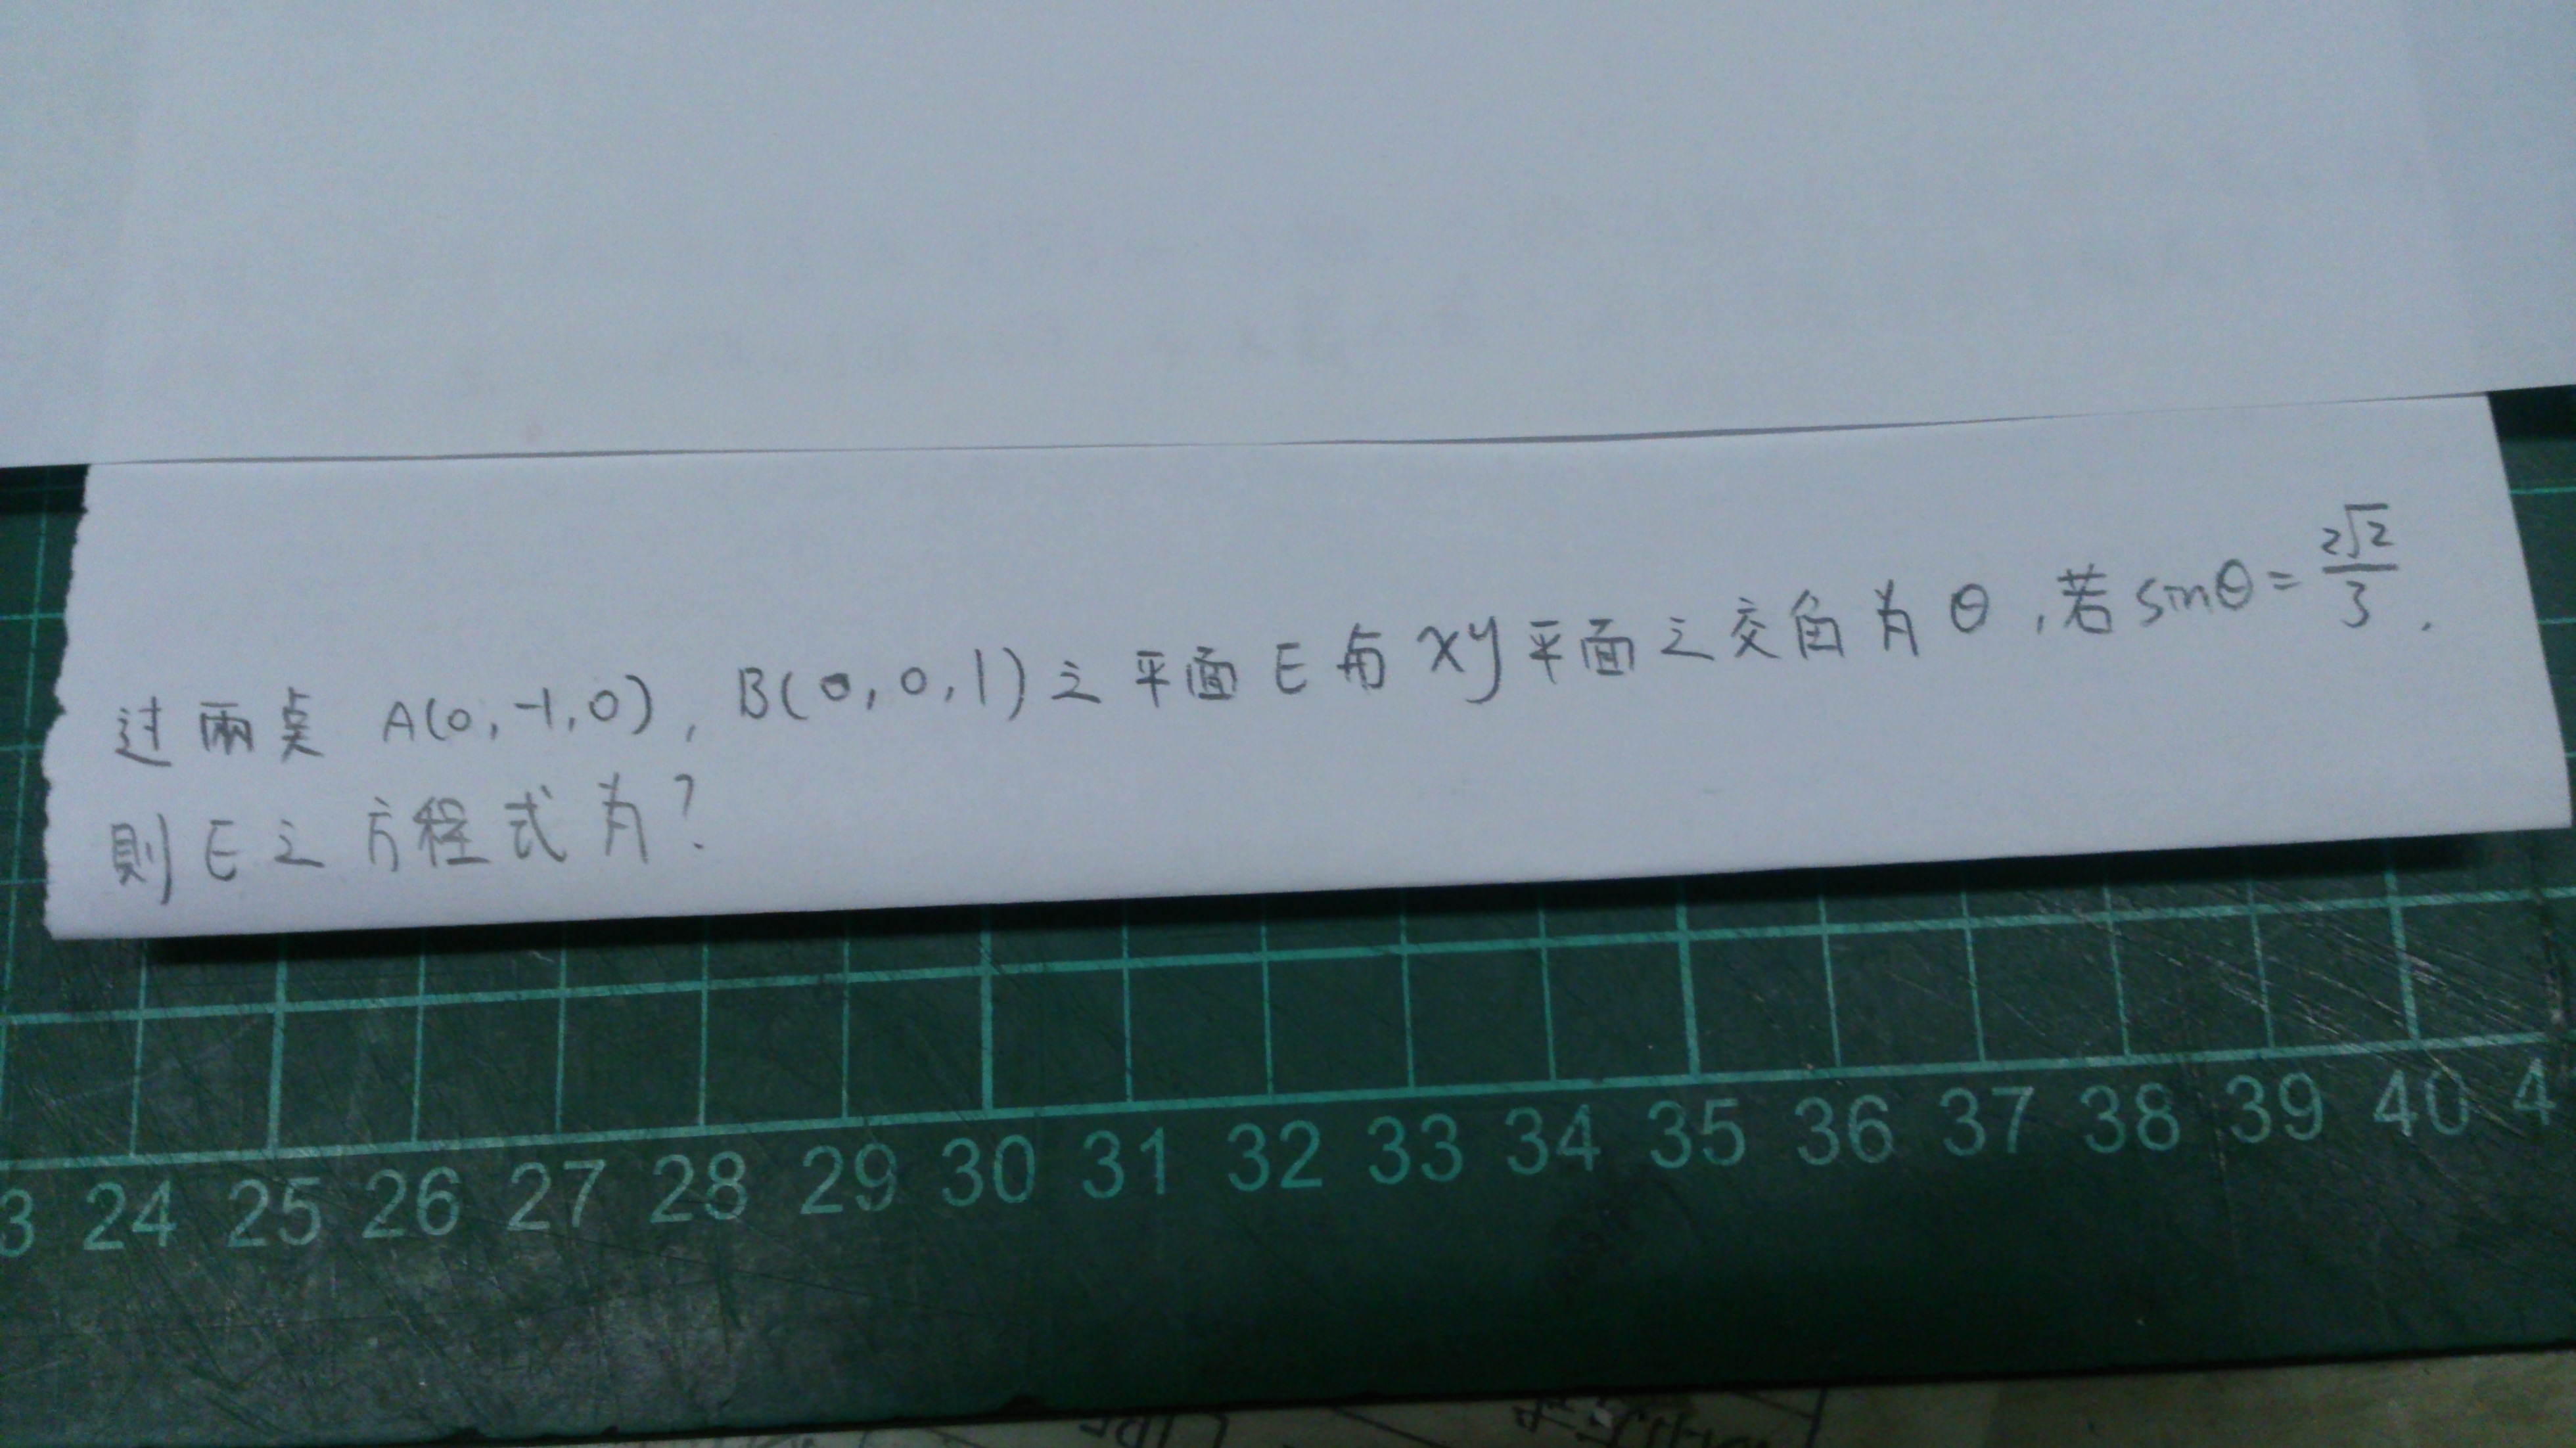 过兩点 A(0,-1,0), B(0,0,1)之平面E与xy平面之交角为θ,若sinθ=2√2/3.
則E之方程式为?
3 24 25 26 27 28 29 30 31 32 33 34 35 36 37 38 39 40 4